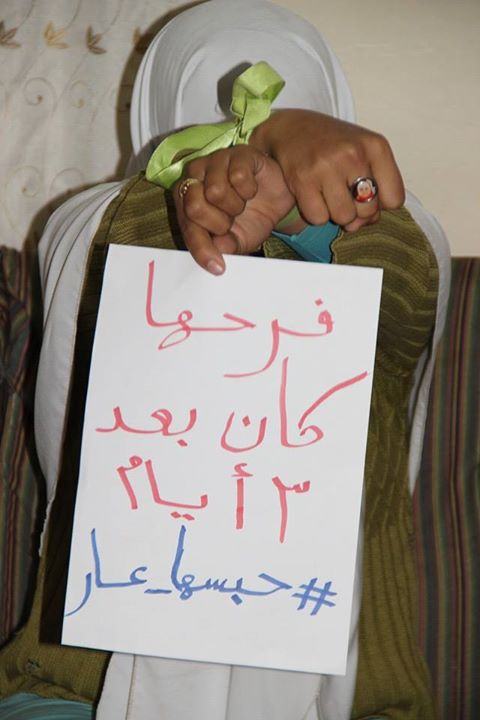 فرحها
كان بعد
٣ أيام
#حبسها_عار